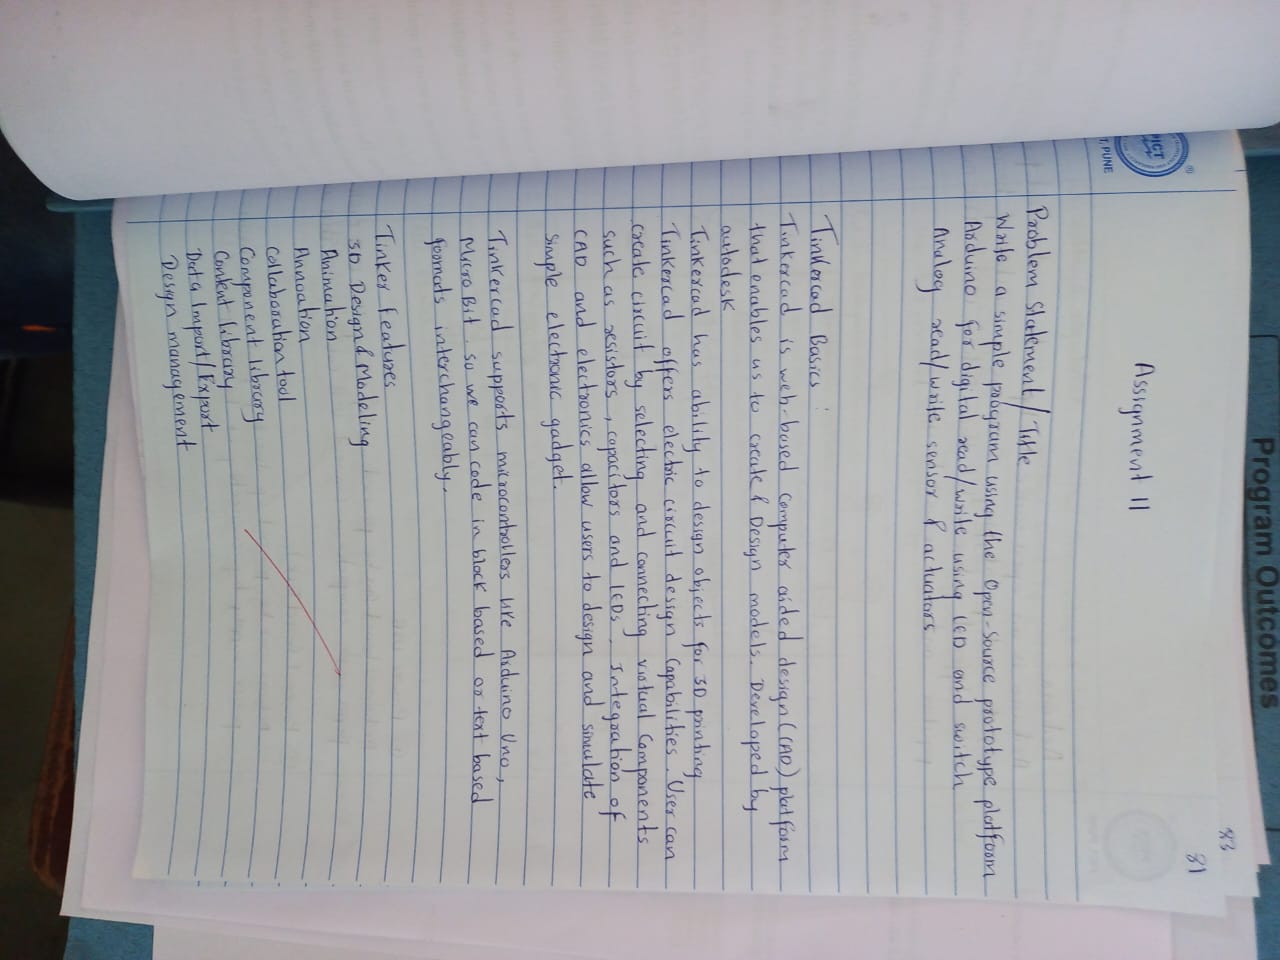 Program Outcomes
83
81
PICT
T, PUNE
Assignment 11
Problem Statement / Title
Write a simple program using the Open-Source prototype platform
Arduino for digital read/write using LED and switch
Analog read/write sensor & actuators
Tinkercad Basics :
Tinkercad is web-based computer aided design (CAD) platform
that enables us to create & Design models. Developed by
autodesk
Tinkercad has ability to design objects for 3D printing
Tinkercad offers electric circuit design Capabilities. User can
create circuit by selecting and connecting virtual Components
such as resistors, capacitors and LEDs. Integration of
CAD and electronics allow users to design and simulate
simple electronic gadget.
Tinkercad supports microcontrollers like Arduino Uno,
Micro Bit. so we can code in block based or text based
formats interchangeably.
Tinker Features
3D Design & Modeling
Animation
Annoation
Collaboration tool
Component library
Content library
Data Import/Export
Design management